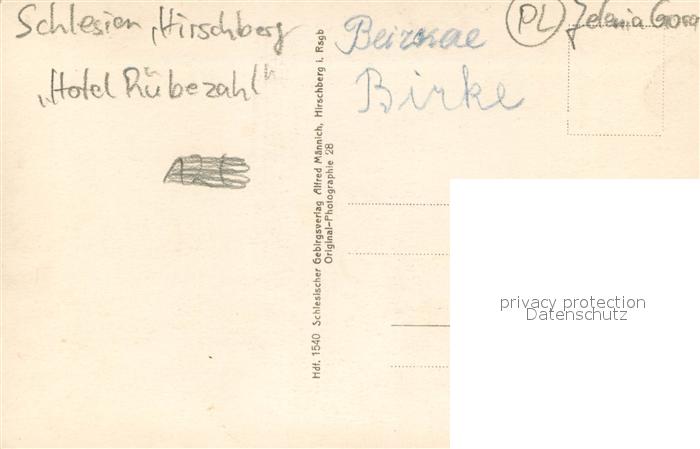 Schlesien, Hirschberg
„Hotel Rübezahl"
(PL) Jelenia Gora
Birke
Hdf. 1540 Schlesischer Gebirgsverlag Alfred Männich, Hirschberg i. Rsgb
Original-Photographie 28
privacy protection
Datenschutz